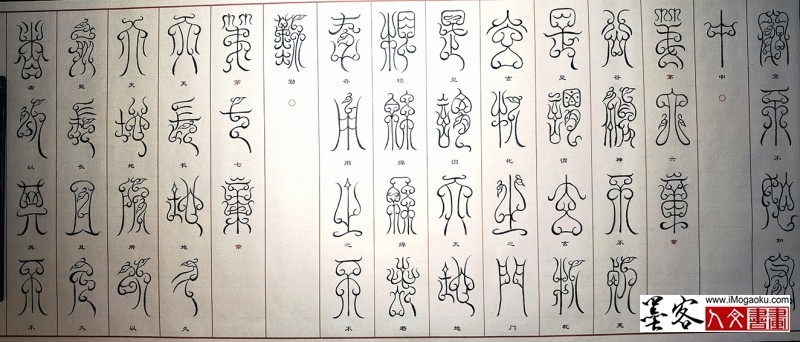 穷不如守
中
第六章
谷神不死
是谓玄牝
玄牝之门
是谓天地
根绵绵若
存用之不
勤
第七章
天长地久
天地所以
能长且久
者以其不
墨客
www.iMogaoku.com
人文書畫